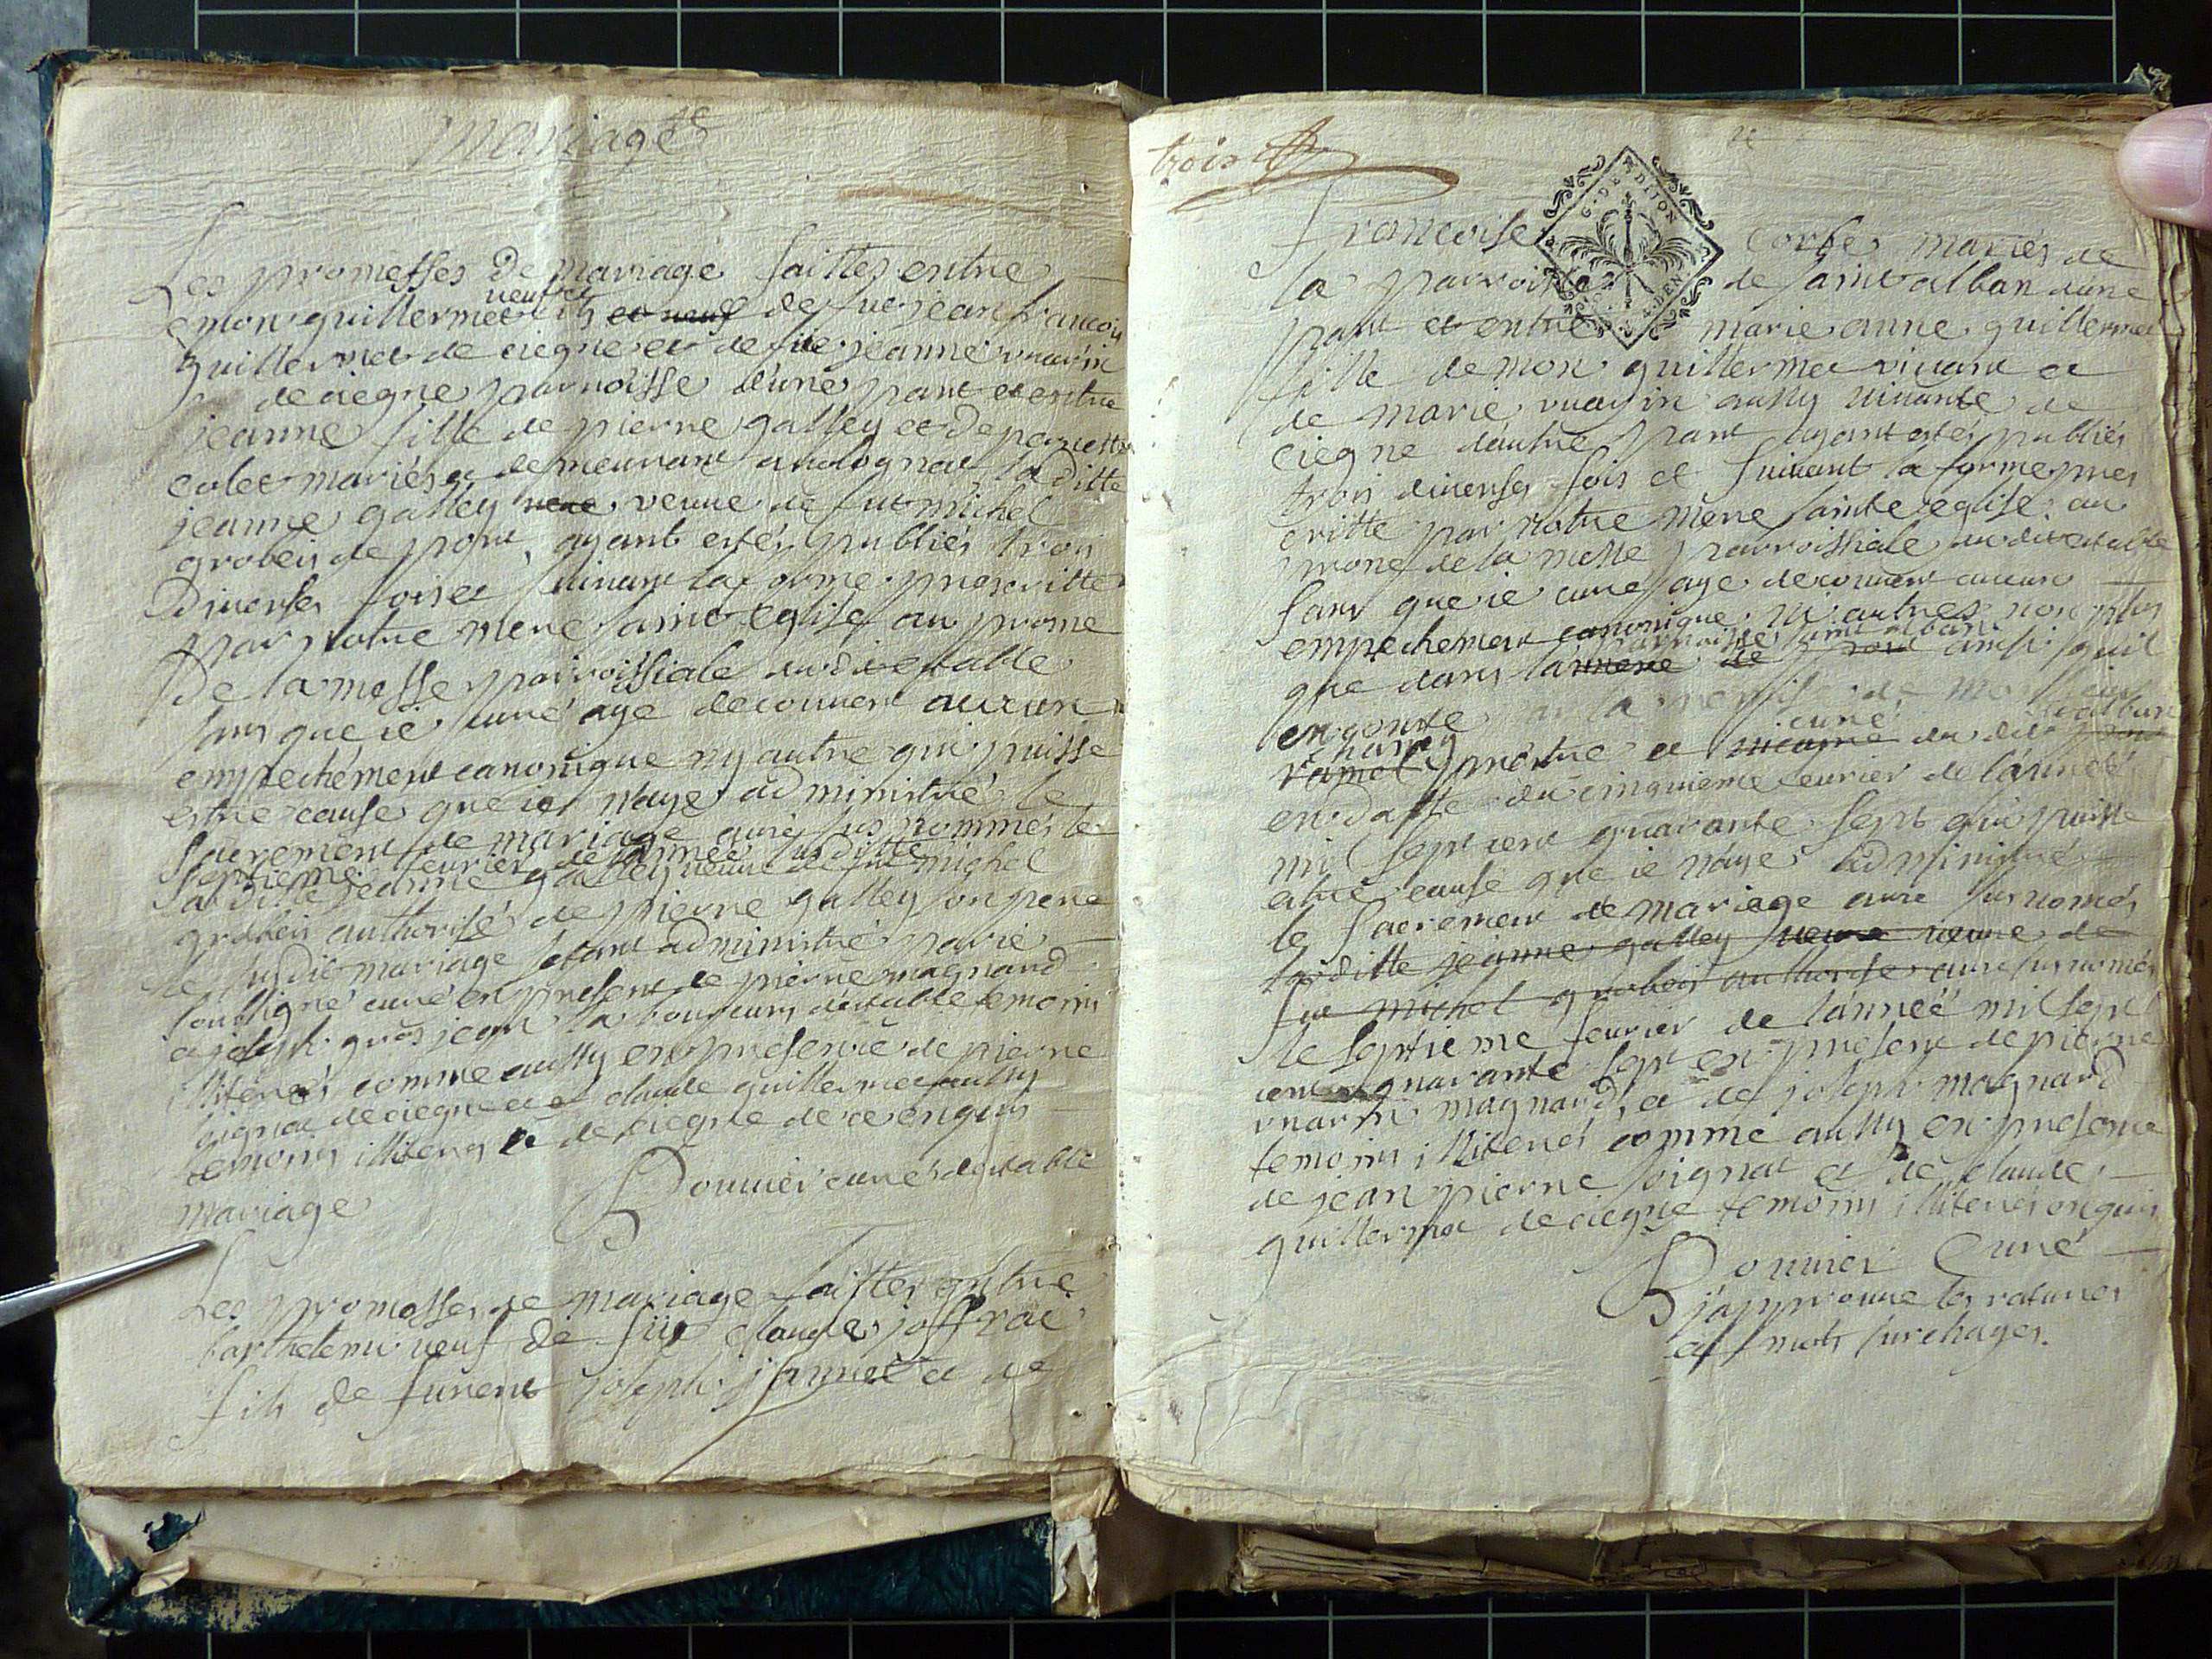 mariage
Les promesses De mariage faittes entre
veuf et
emon guillermet fils et veuf de fue jean francois
guillermet de ciegne et de fue jeanne vuarin
de ciegne parroisse d'une part et entre
jeanne fille de pierre galley et de pernette
colet mariés et demeurant a volognat la ditte
jeanne galley veuve de fut michel
grobeis de pont, ayant estés publiés trois
Diverses fois et suivant la forme prescritte
par notre mere sainte eglise au prone
De la messe parroissiale
sans que ie curé aye decouvert aucun
empechément canonique ny autre qui puisse
estre cause que ie n'aye administré le
sacrement de mariage aux sus nommés le
septieme feurier de l'année susditte
la ditte jeanne galley veuve de fut michel
grobeis authorisé de pierre galley son pere
le susdit mariage estant administré par ie
soussigné curé en present de pierre magnard
et joseph grosjean laboureurs temoins
illiterés comme aussy en presence de pierre
oignat de ciegne et claude guillermet aussy
temoins illiterés de ciegne de ce enquis
mariage
Bouvier curé
Les promesses de mariage faittes entre
barthelemi veuf de fue claude joffrai
fils de furent joseph jannet et de
trois
G. DE DIION
francoise corbe mariés de
la parroisse de saint alban d'une
part et entre marie anne guillermet
fille de mon guillermet vivant et
de marie vuarin aussy vivante de
ciegne d'autre part ayant estés publiés
trois diverses fois et suivant la forme pres
critte par notre mere sainte eglise au
prone de la messe parroissiale
sans que ie curé aye decouvert aucun
empechement canonique ni autres non plus
parroisse saint alban
que dans la ainsi quil
en conste par la remise de
curé
ramel prêtre et vicaire du dit
en datte du cinquieme feurier de l'année
mil sept cent quarante sept qui puisse
etre cause que ie n'aye administré
le sacrement de mariage aux sus només
laditte jeanne galley veuve de
fut michel grobeis authorisé aux sus només
le septieme feurier de l'année mil sept
cent quarante sept en present de pierre
vuarin magnard, et de joseph magnard
temoins illiterés comme aussy en presence
de jean pierre oignat et de claude
guillermet de ciegne temoins illiterés enquis
Bouvier Curé
j'approuve les ratures
et mots surchages.